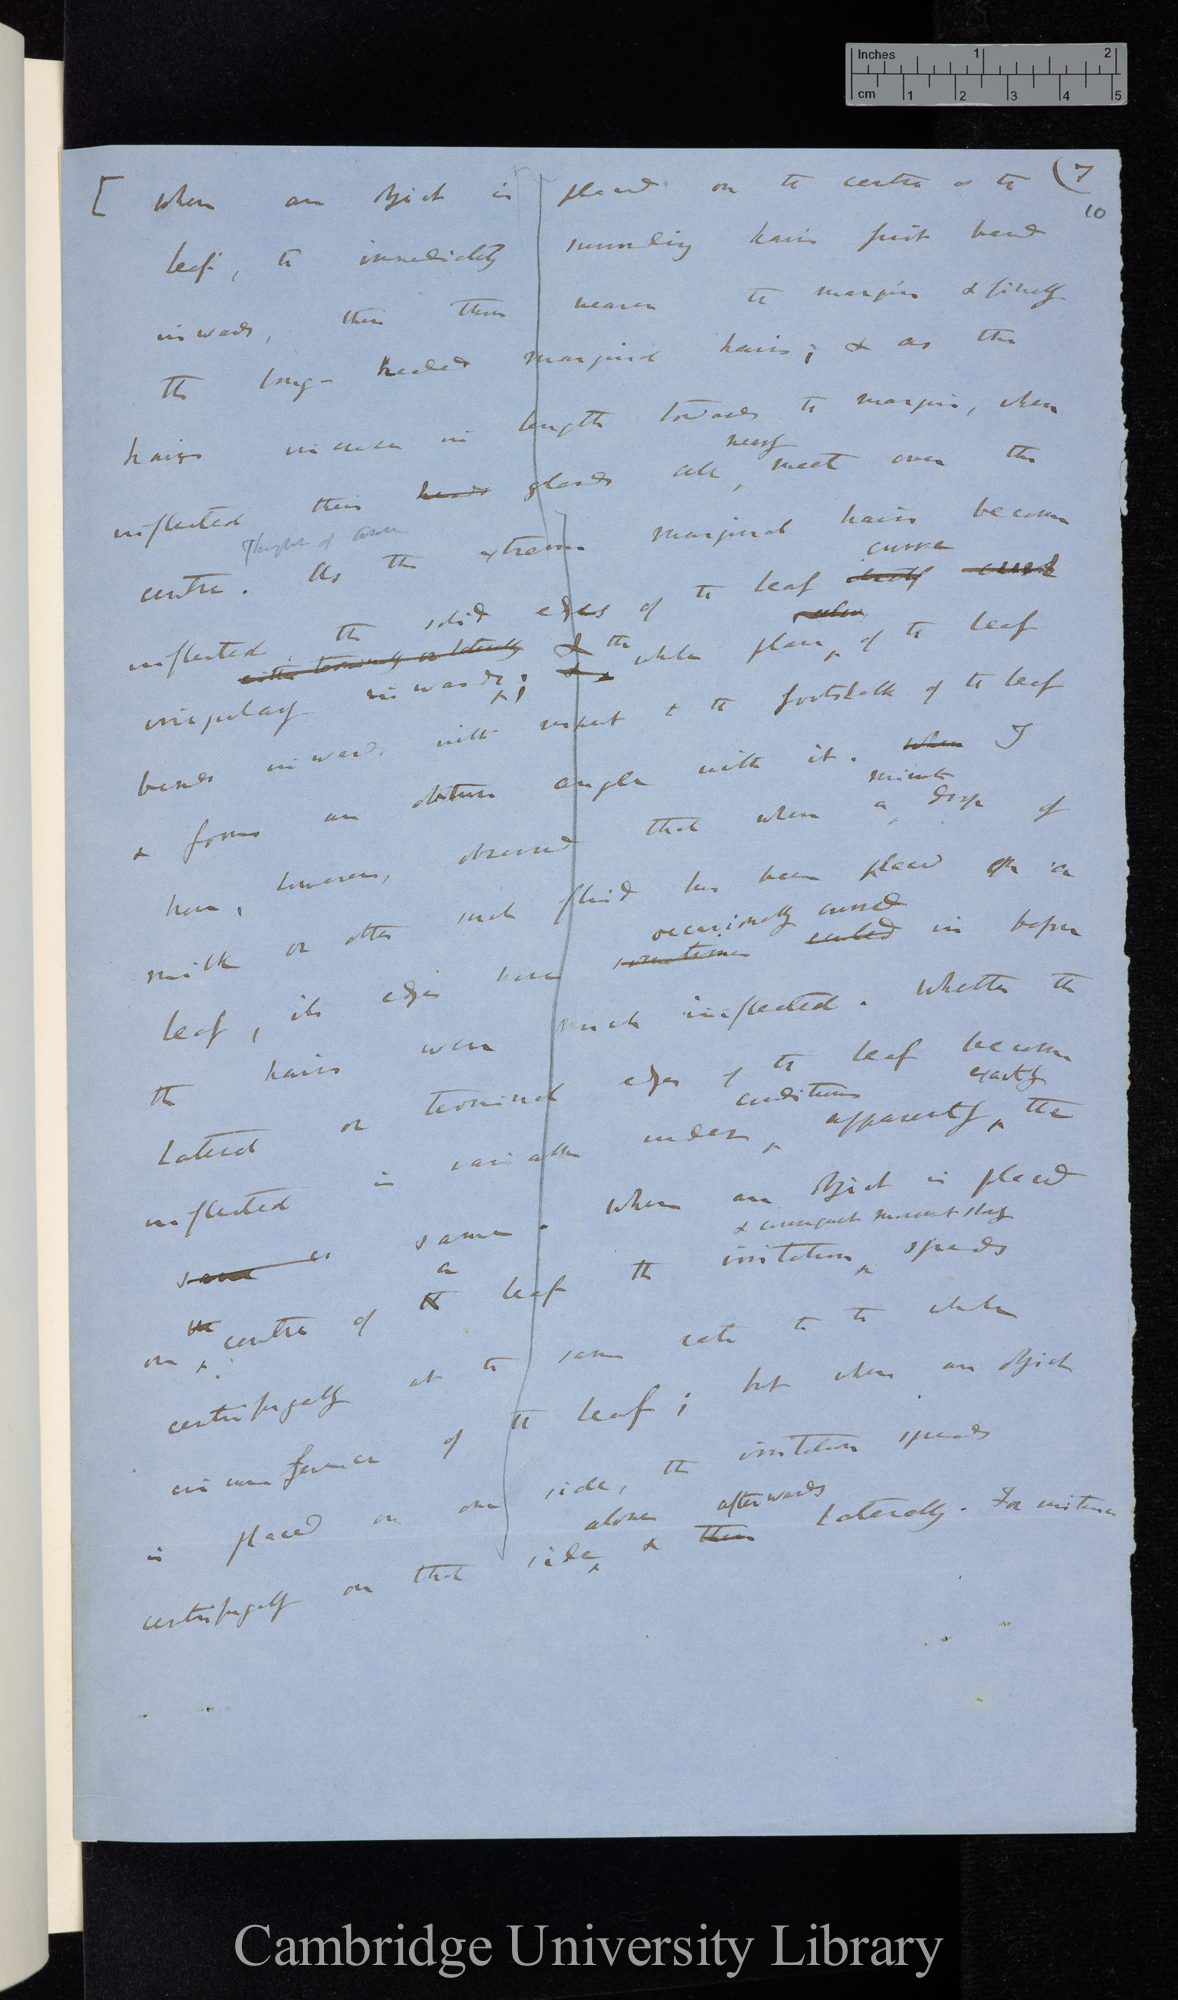 Inches 1 2
cm 1 2 3 4 5
(7
10
[ When an object is placed on the centre of the
leaf, the immediately surrounding hairs first bend
inwards, then those nearer the margin & finally
the long-headed marginal hairs; & as the
hairs increase in length towards the margin, when
nearly
inflected their heads glands all, meet over the
Thought of
centre. As the extreme marginal hairs become
curve
inflected, the solid edges of the leaf curve
either terminally or laterally & the when
irregularly inwards; & whole plane of the leaf
bends inward with respect to the footstalk of the leaf
& forms an obtuse angle with it. When I
minute
have, however, observed that when a drop of
milk or other such fluid has been placed on a
occasionally curved
leaf, its edges have sometimes curled in before
the hairs were much inflected. Whether the
lateral or terminal edges of the leaf become
conditions exactly
inflected is variable under, apparently, the
same as same. When an object is placed
a & consequent movement
on the centre of the leaf the irritation spreads
centrifugally at the same rate to the whole
circumference of the leaf; but when an object
is placed on one side, the irritation spreads
alone afterwards
centrifugally on that side, & then laterally. For instance
Cambridge University Library